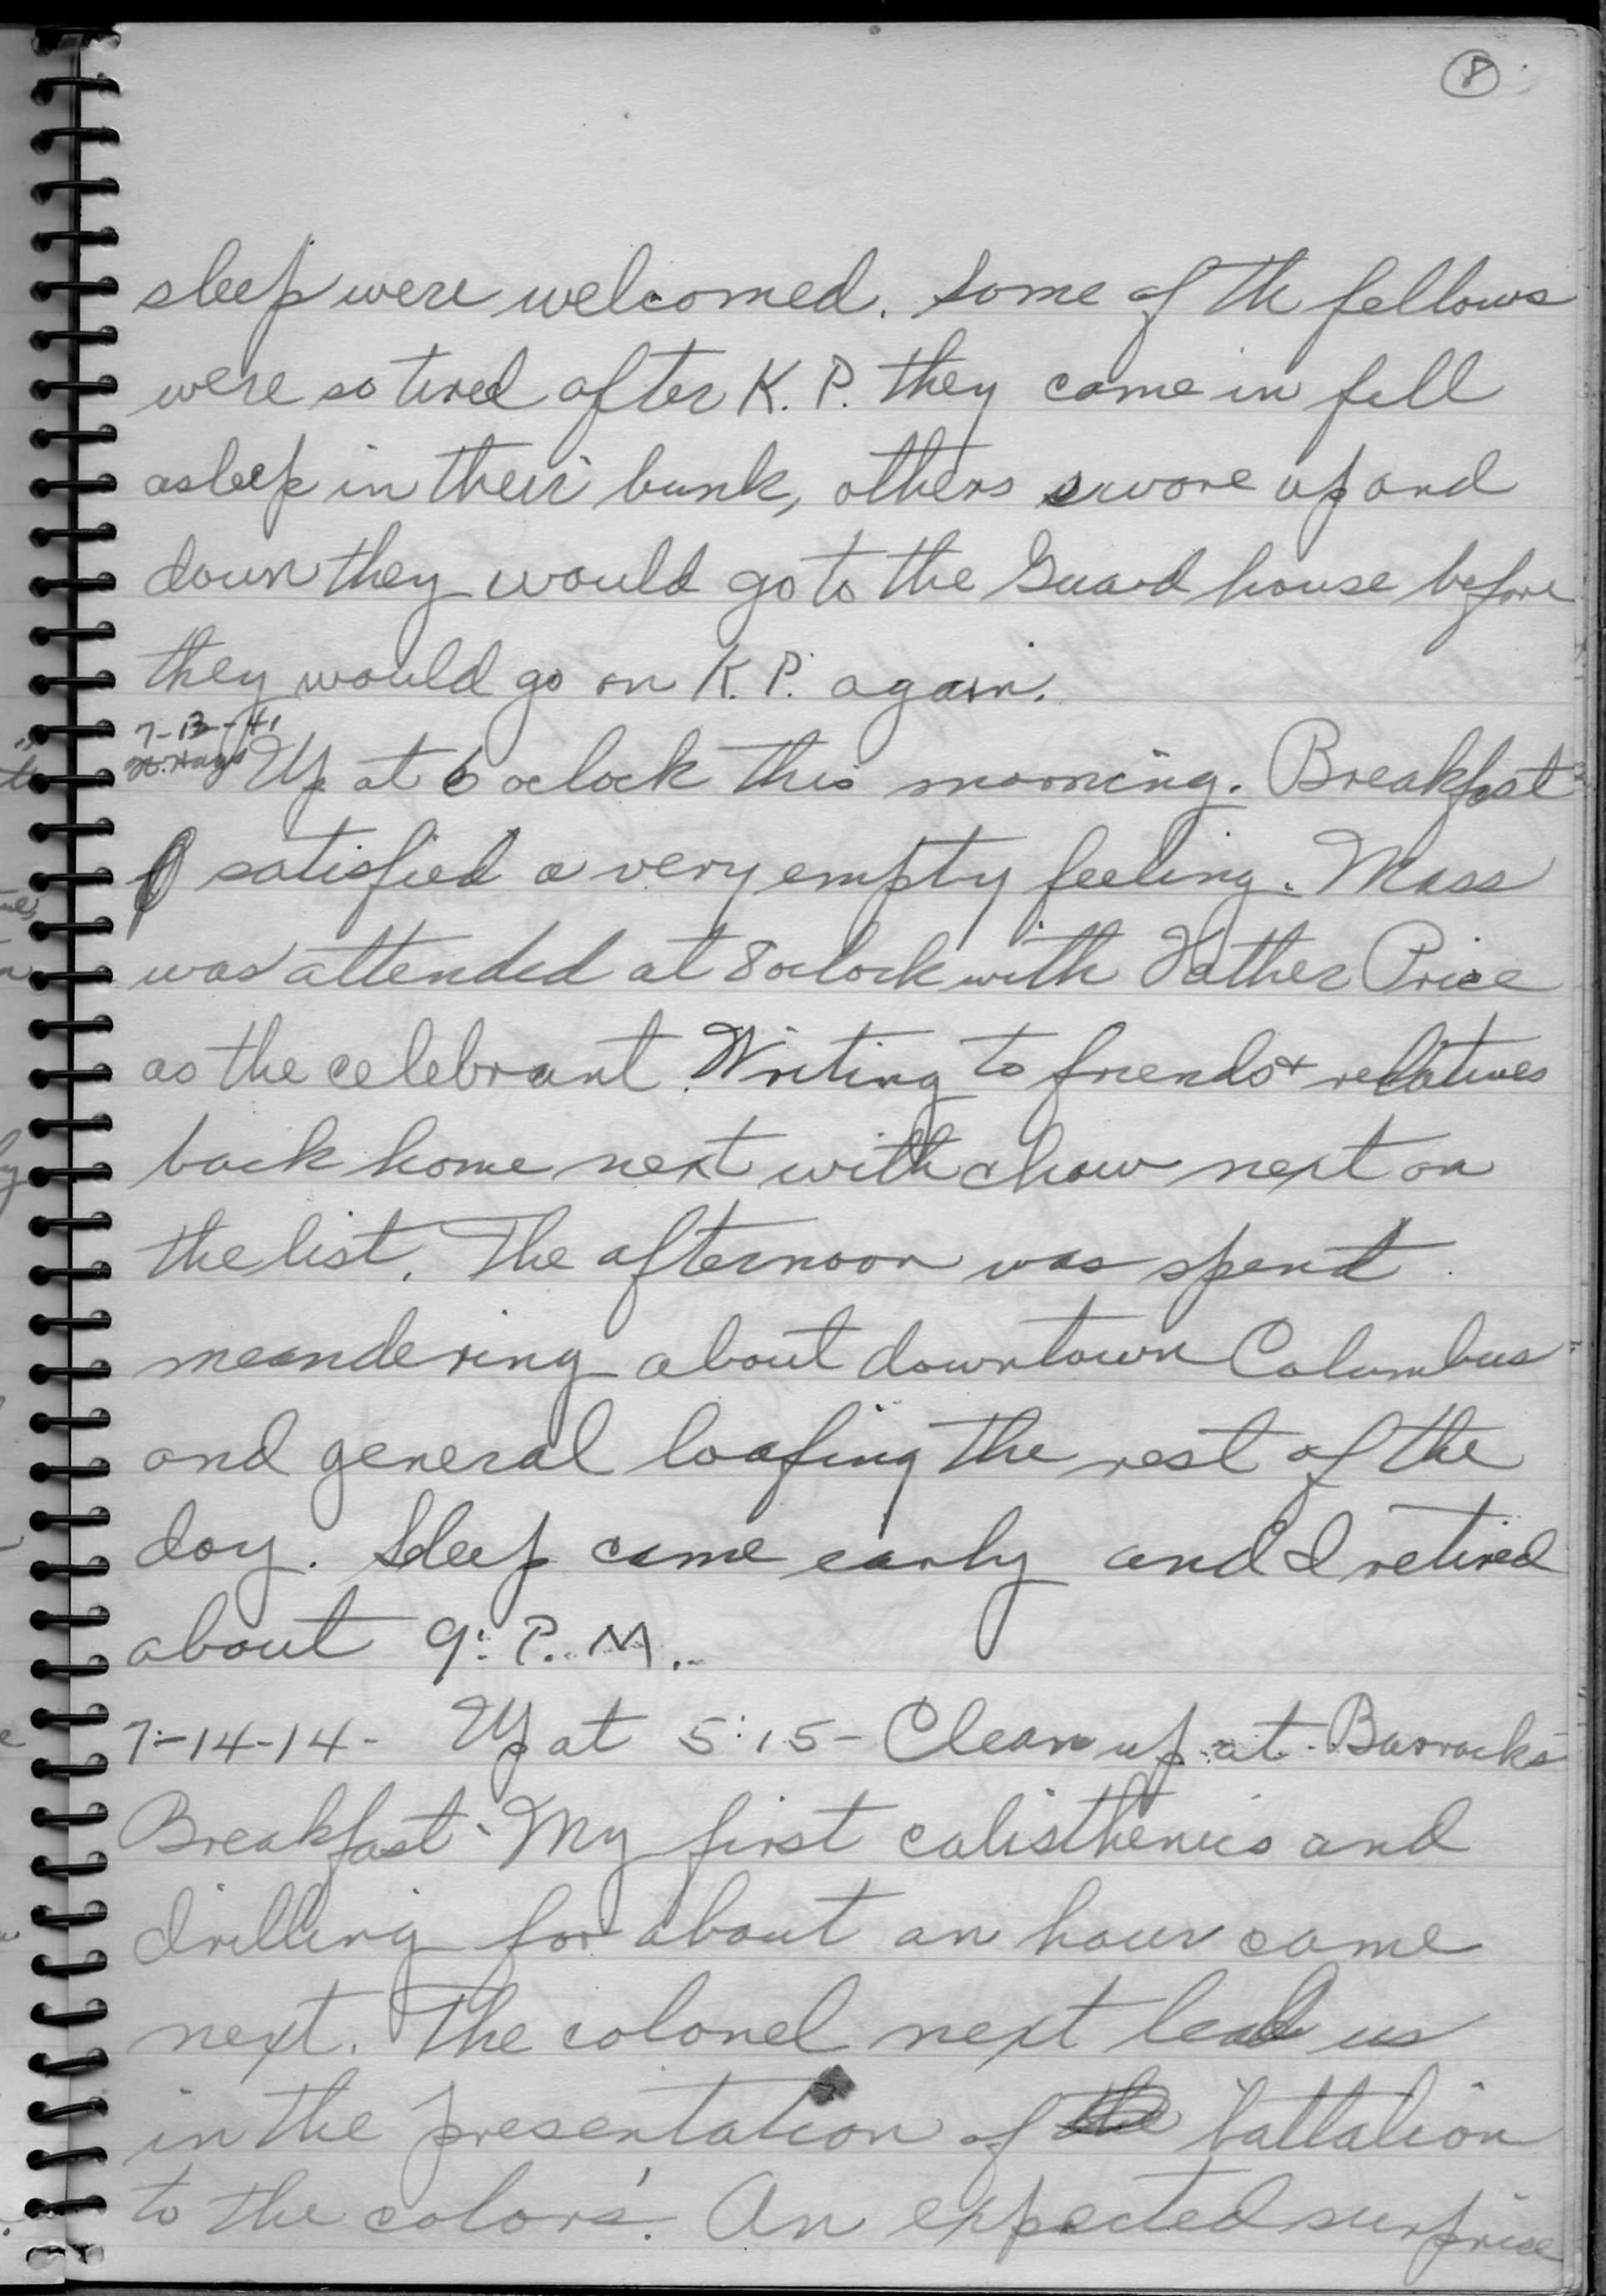 8
sleep were welcomed. Some of th fellows
were so tired after K.P. they came in fell
asleep in their bunk, others swore up and
down they would go to the Guard house before
they would go on K.P. again.
7-13-41
Ft. Hays Up at 6 oclock this morning. Breakfast
satisfied a very empty feeling. Mass
was attended at 8 oclock with Father Price
as the celebrant. Writing to friends + relatives
back home next with chow next on
the list. The afternoon was spent
meandering about downtown Columbus
and general loafing the rest of the
day. Sleep came early and I retired
about 9: P.M.
7-14-14- Up at 5:15- Clean up at Barracks-
Breakfast- My first calisthenics and
drilling for about an hour came
next. The colonel next lead us
in the presentation of the battalion
to the colors. An expected surprise